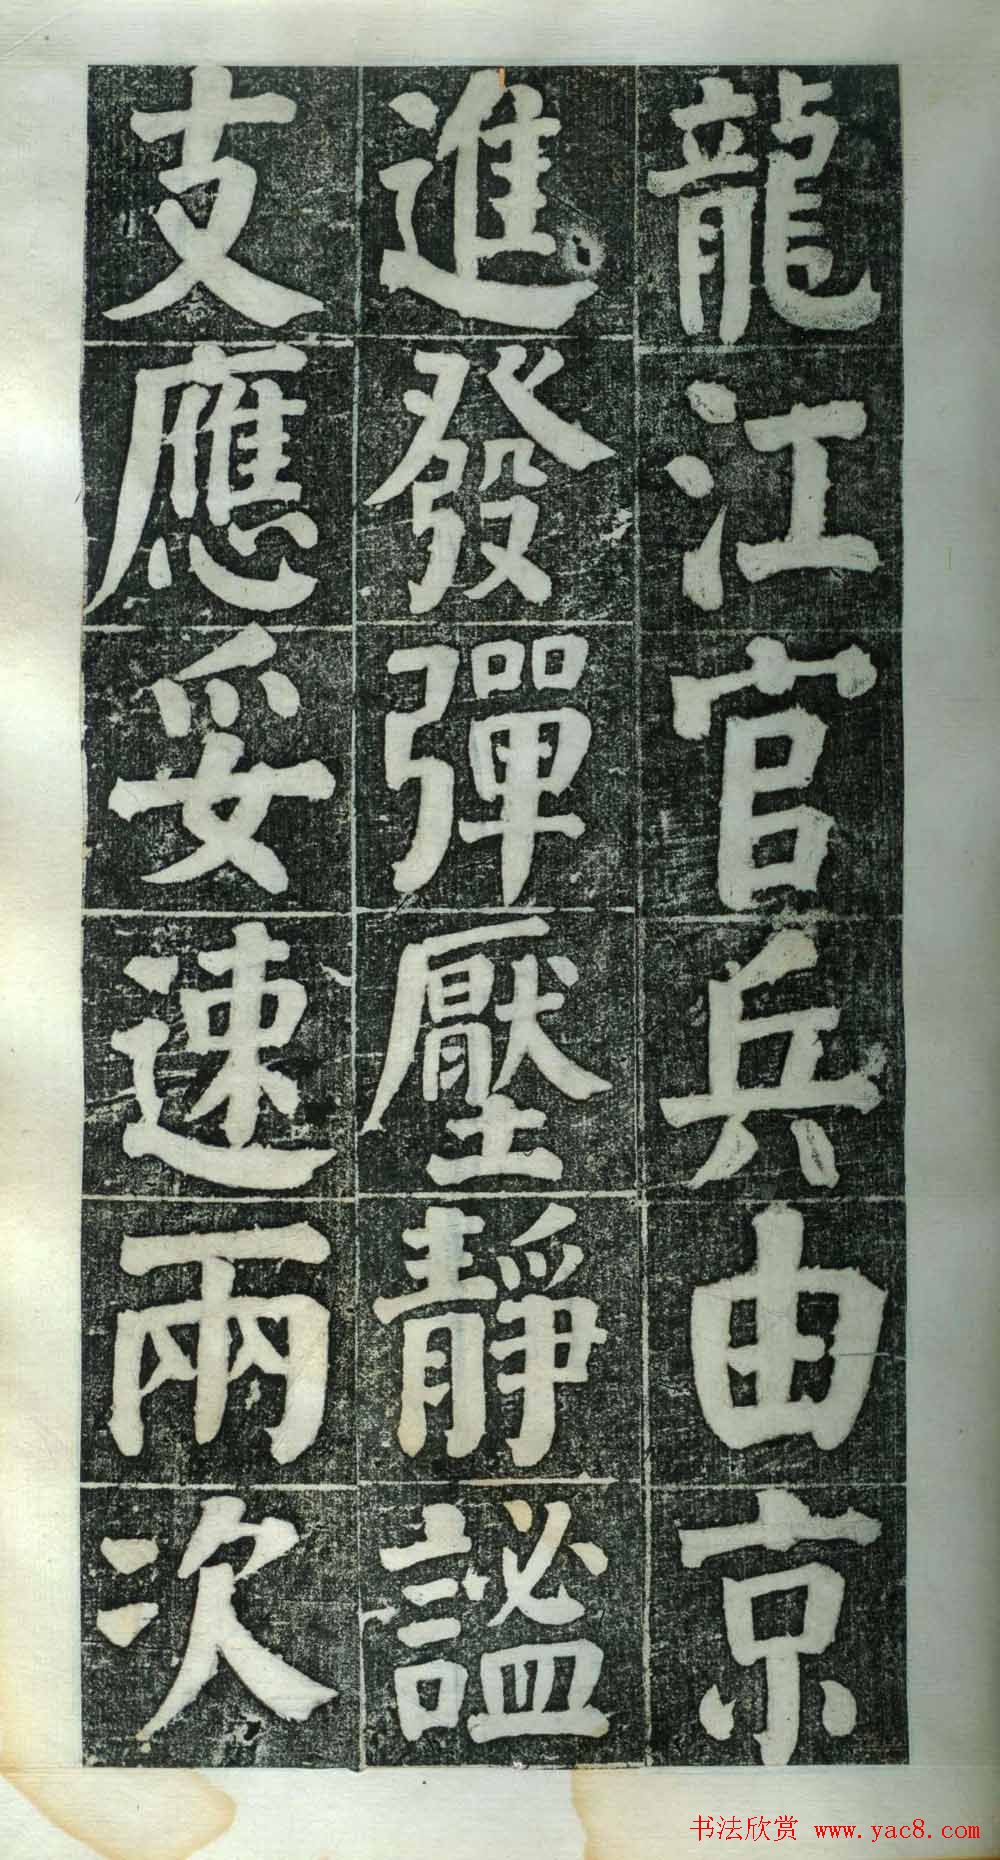 龍江官兵由京
進發彈壓靜謐
支應妥速兩次
书法欣赏 www.yac8.com